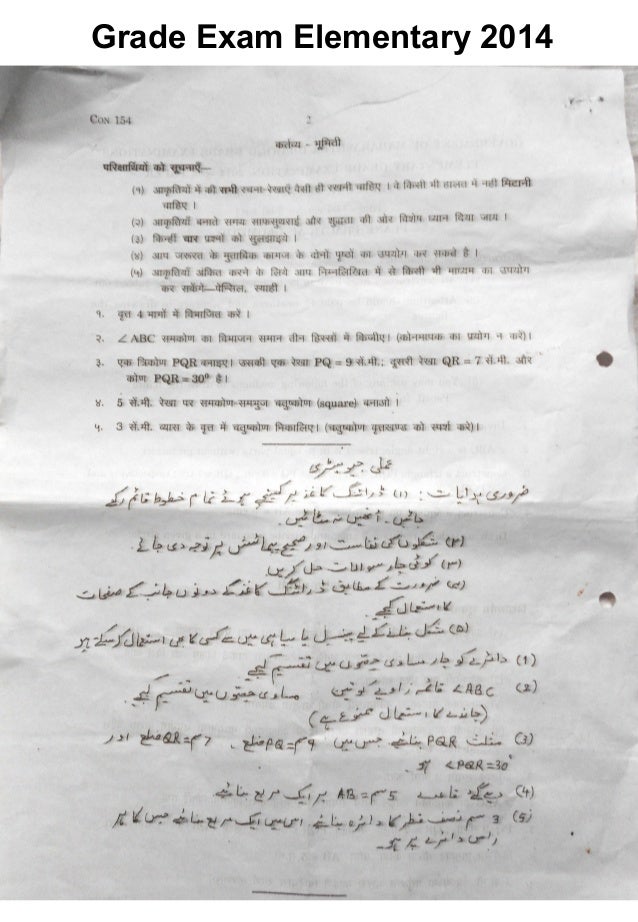 Grade Exam Elementary 2014
CON 154
2
कर्तव्य - भूमिती
परिक्षार्थियों को सूचनाएँ—
(१) आकृतियों में की सभी रचना-रेखाएं वैसी ही रखनी चाहिए । वे किसी भी हालत में नही मिटानी
चाहिए ।
(२) आकृतियाँ बनाते समय साफसुथराई और शुद्धता की ओर विशेष ध्यान दिया जाय ।
(३) किन्हीं चार प्रश्नों को सुलझाइये ।
(४) आप जरूरत के मुताबिक कागज के दोनों पृष्ठों का उपयोग कर सकते है ।
(५) आकृतियाँ अंकित करने के लिये आप निम्नलिखित में से किसी भी माध्यम का उपयोग
कर सकेंगे—पेन्सिल, स्याही ।
१. वृत्त 4 भागों में विभाजित करें ।
२. ∠ABC समकोण का विभाजन समान तीन हिस्सों में किजीए। (कोनमापक का प्रयोग न करें)।
३. एक त्रिकोण PQR बनाइए। उसकी एक रेखा PQ = 9 सें.मी.; दूसरी रेखा QR = 7 सें.मी. और
कोण PQR = 30° है।
४. 5 सें.मी. रेखा पर समकोण-समभुज चतुष्कोण (square) बनाओ ।
५. 3 सें.मी. व्यास के वृत्त में चतुष्कोण निकालिए। (चतुष्कोण वृत्तखण्ड को स्पर्श करे)।
عملی جیومیٹری
ضروری ہدایات : (۱) ڈرائنگ کاغذ پر کھینچے ہوئے تمام خطوط قائم رکھے
جائیں۔ اُنھیں نہ مٹائیں۔
(۲) شکلوں کی نفاست اور صحیح پیمائش پر توجہ دی جائے۔
(۳) کوئی چار سوالات حل کریں
(۴) ضرورت کے مطابق ڈرائنگ کاغذ کے دونوں جانب کے صفحات
کا استعمال کیجیے۔
(۵) شکل بنانے کے لیے پینسل یا سیاہی میں سے کسی کا بھی استعمال کر سکتے ہیں
(1) دائرے کو چار مساوی حصّوں میں تقسیم کیجیے
(2) ∠ABC قائمہ زاویے کو تین مساوی حصّوں میں تقسیم کیجیے۔
(چاندے کا استعمال ممنوع ہے)
(3) مثلث PQR بنائیے جس میں 9سم=PQ ضلع ، 7سم=QR ضلع اور
∠PQR=30° ہو۔
(4) دیے گئے قاعدہ 5سم=AB پر ایک مربع بنائیے۔
(5) 3 سم نصف قطر کا دائرہ بنائیے۔ اس میں ایک مربع بنائیے جس کا ہر
راس دائرے پر ہو۔